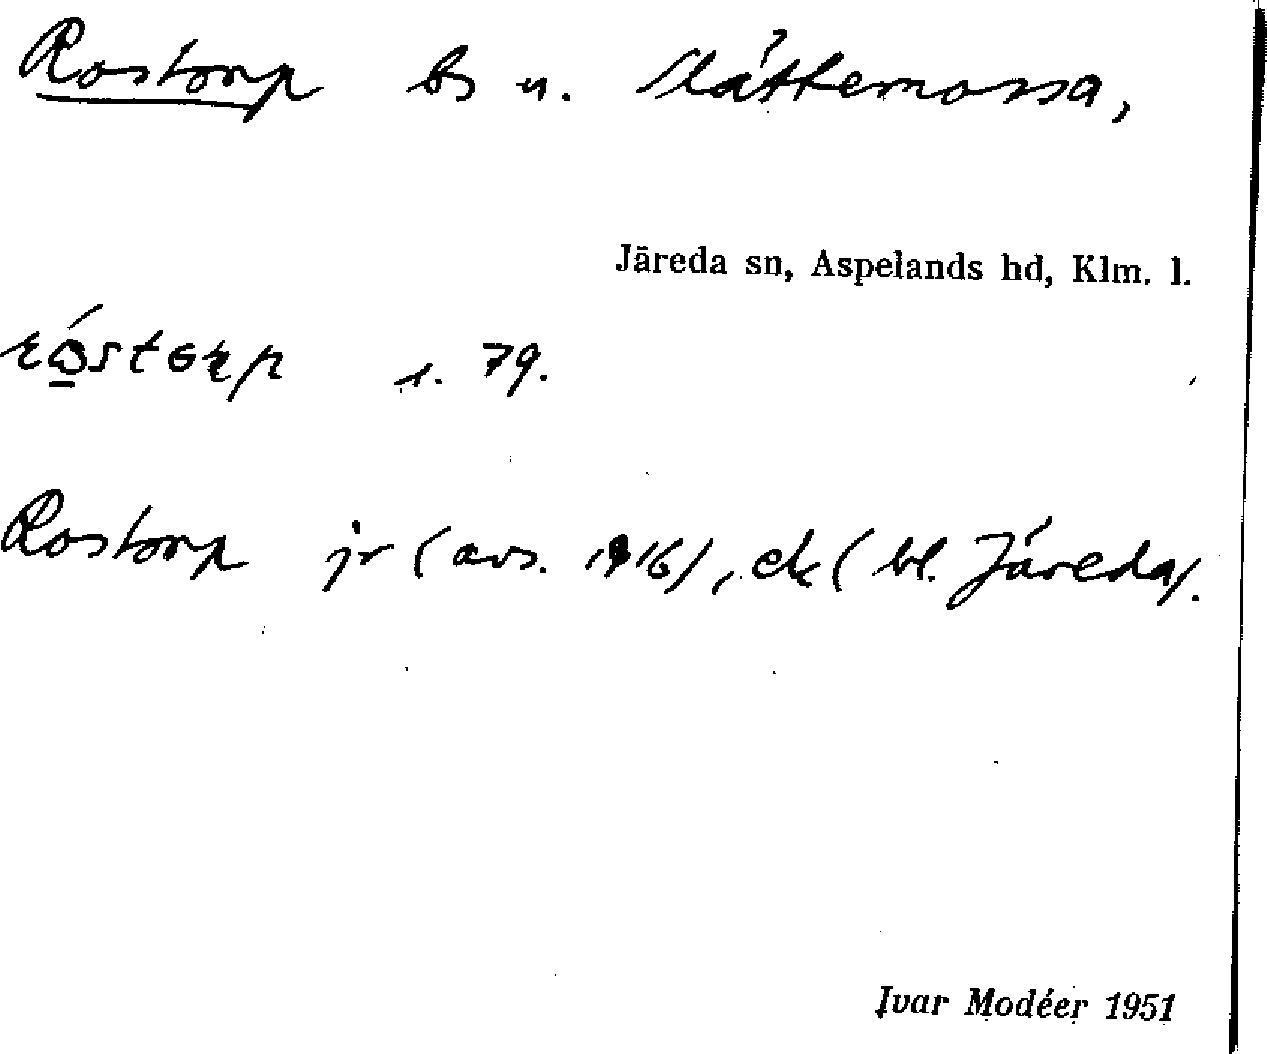 Rostorp bs u. Slåttemossa,
Järeda sn, Aspelands hd, Klm. l.
s. 79.
Rostorp jr (avs. 1916), ek (bl. Järeda).
Ivar Modéer 1951